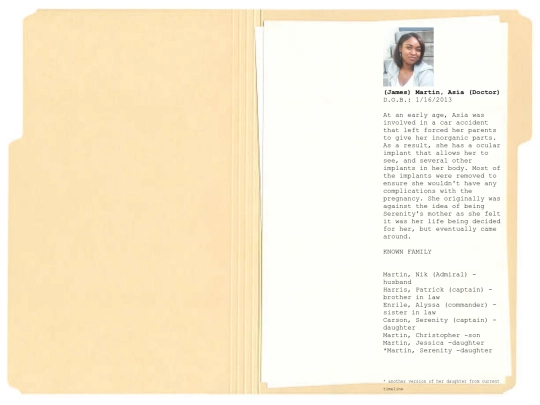 (James) Martin, Asia (Doctor)
D.O.B.: 1/16/2013
At an early age, Asia was
involved in a car accident
that left forced her parents
to give her inorganic parts.
As a result, she has a ocular
implant that allows her to
see, and several other
implants in her body. Most of
the implants were removed to
ensure she wouldn't have any
complications with the
pregnancy. She originally was
against the idea of being
Serenity's mother as she felt
it was her life being decided
for her, but eventually came
around.
KNOWN FAMILY
Martin, Nik (Admiral) -
husband
Harris, Patrick (captain) -
brother in law
Enrile, Alyssa (commander) -
sister in law
Carson, Serenity (captain) -
daughter
Martin, Christopher -son
Martin, Jessica -daughter
*Martin, Serenity -daughter
* another version of her daughter from current
timeline